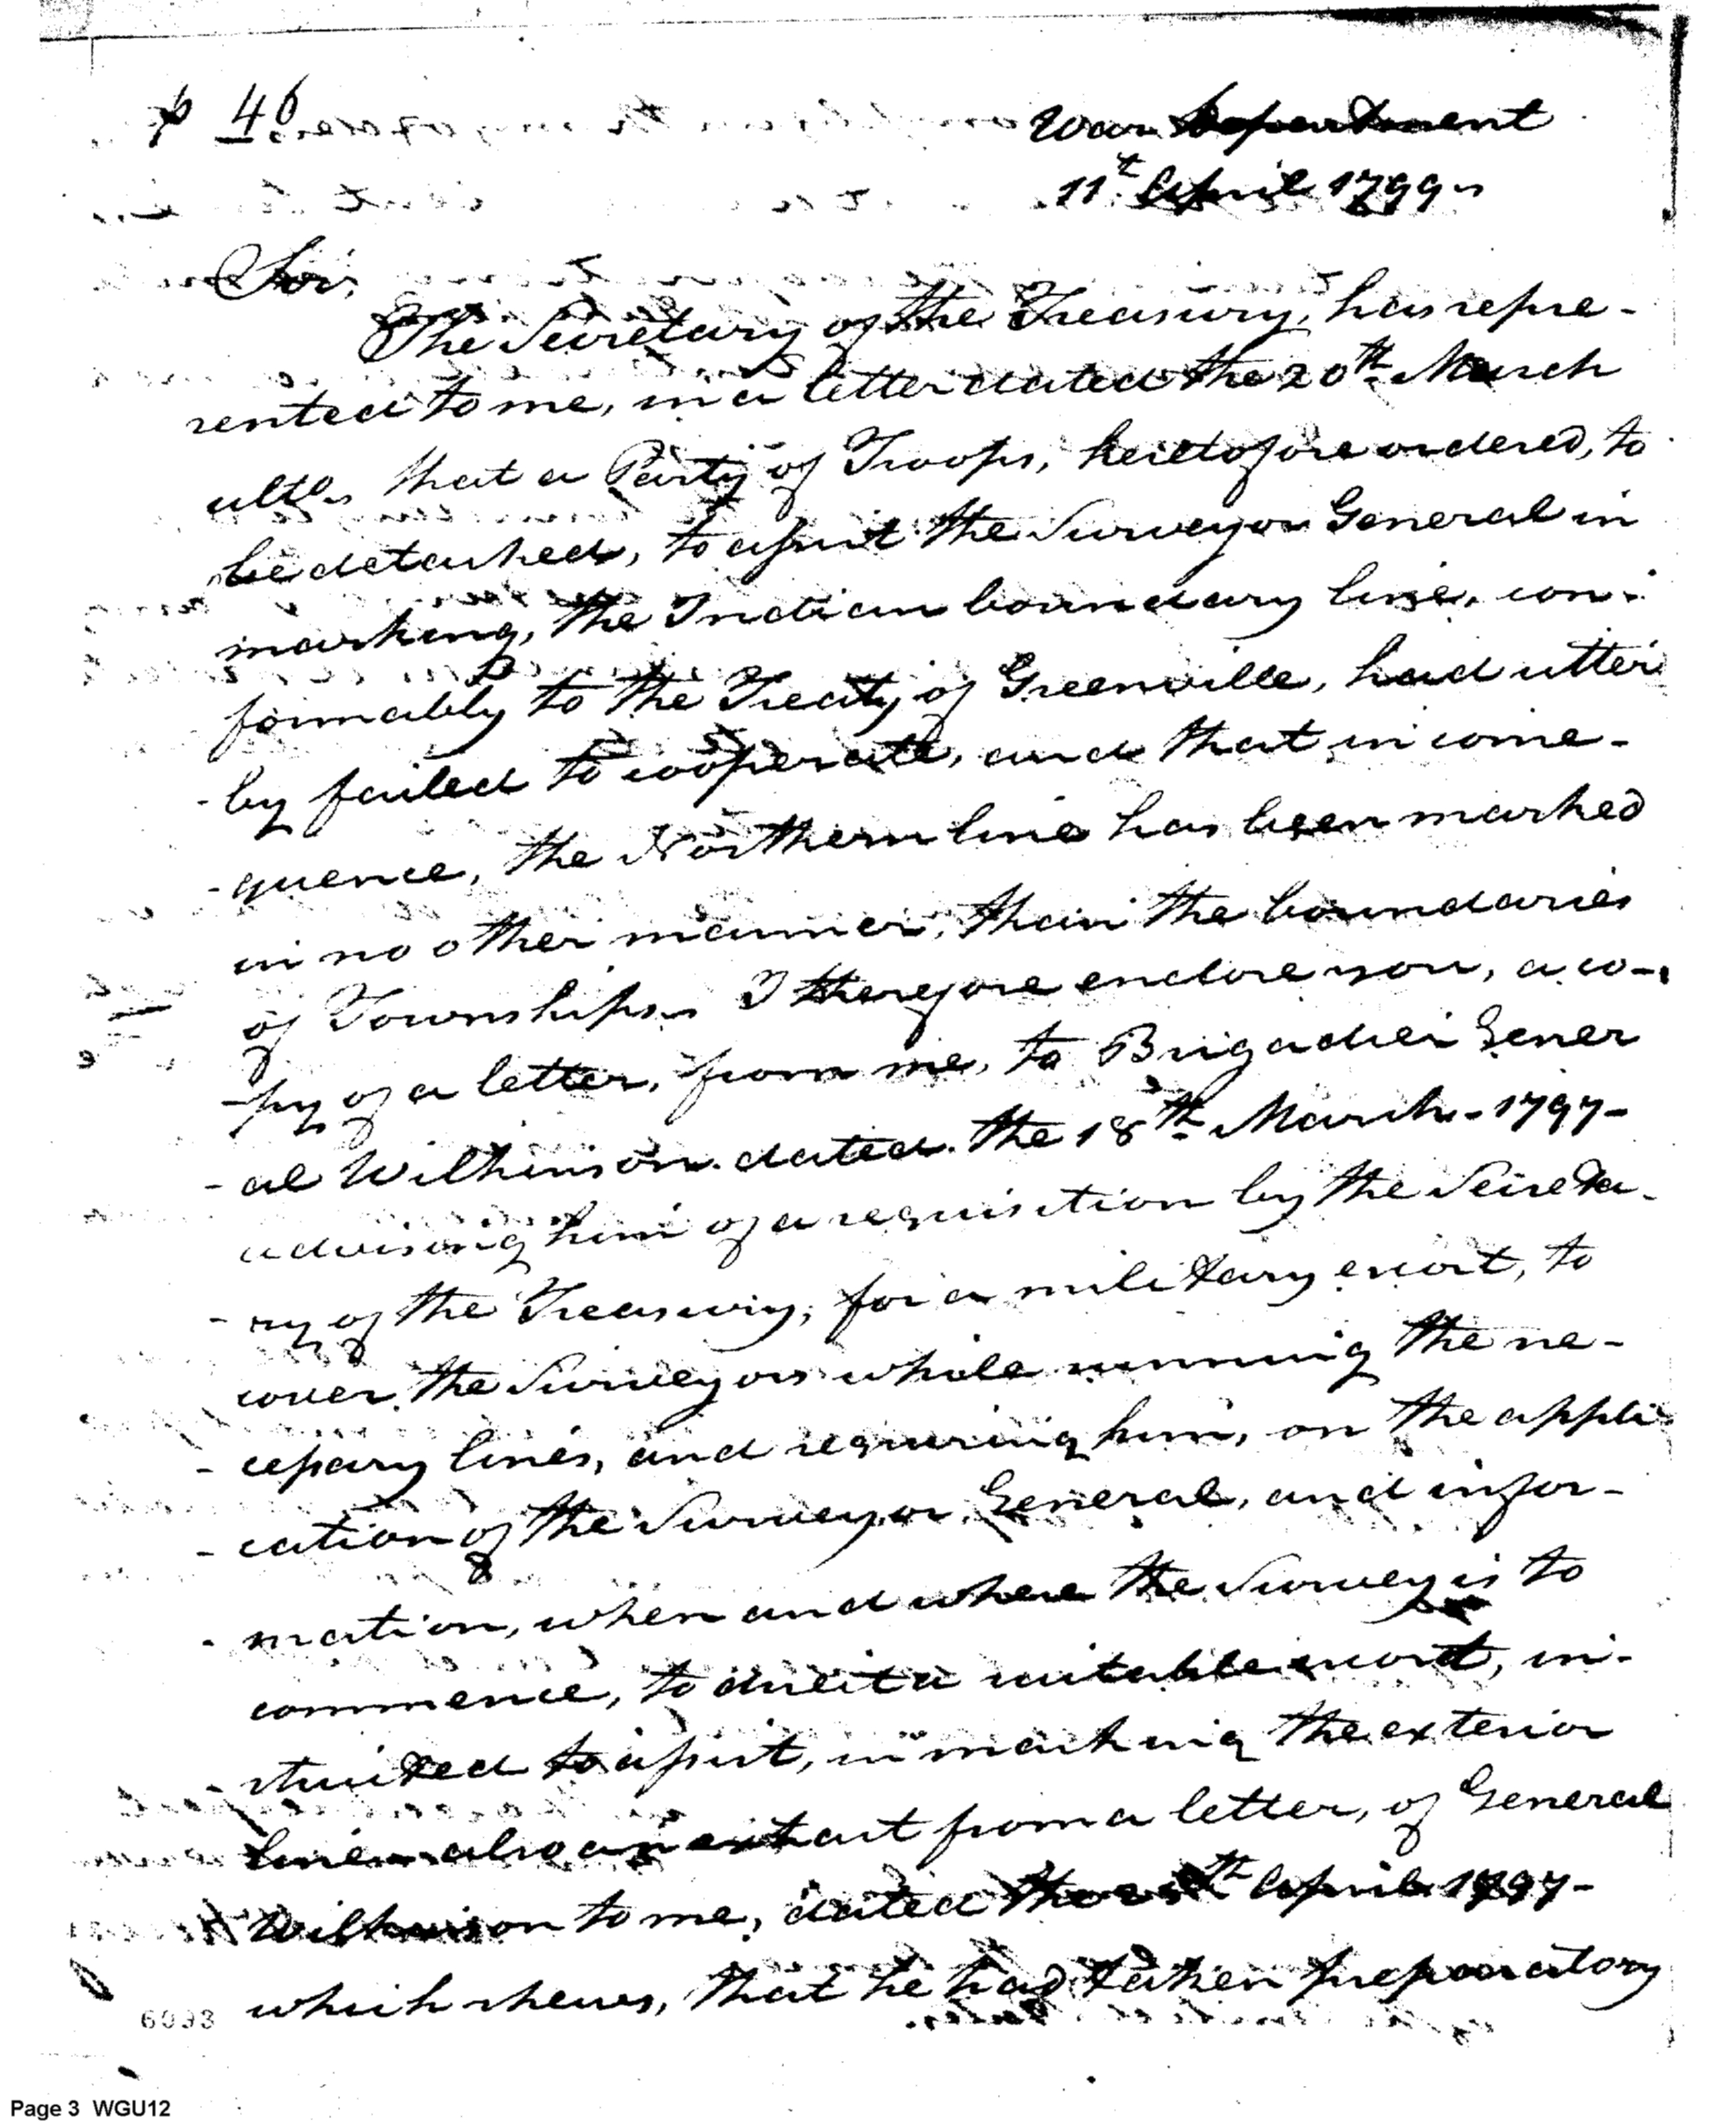 46
War Department
11t April 1799
Sir,
The Secretary of the Treasury, has repre-
sented to me, in a letter dated the 20th March
ulto. that a Party of Troops, heretofore ordered, to
be detached, to assist the Surveyor General in
marking, the Indian boundary line, con-
formably to the Treaty of Greenville, had utter
-ly failed to cooperate, and that in conse-
-quence, the Northern line has been marked
in no other manner, than the boundaries
of Townships. I therefore enclose you, a co-
-py of a letter, from me, to Brigadier Gener
-al Wilkinson dated the 18th March - 1797-
advising him of a requisition by the Secreta-
-ry of the Treasury, for a military escort, to
cover the Surveyors while running the ne-
-cessary lines, and requiring him, on the appli
-cation of the Surveyor General, and infor-
-mation, when and where the Survey is to
commence, to direct a suitable escort, in-
-structed to assist, in marking the exterior
line also an extract from a letter, of General
Wilkinson to me, dated the April 1797-
which shews, that he had taken preparatory
6093
Page 3 WGU12